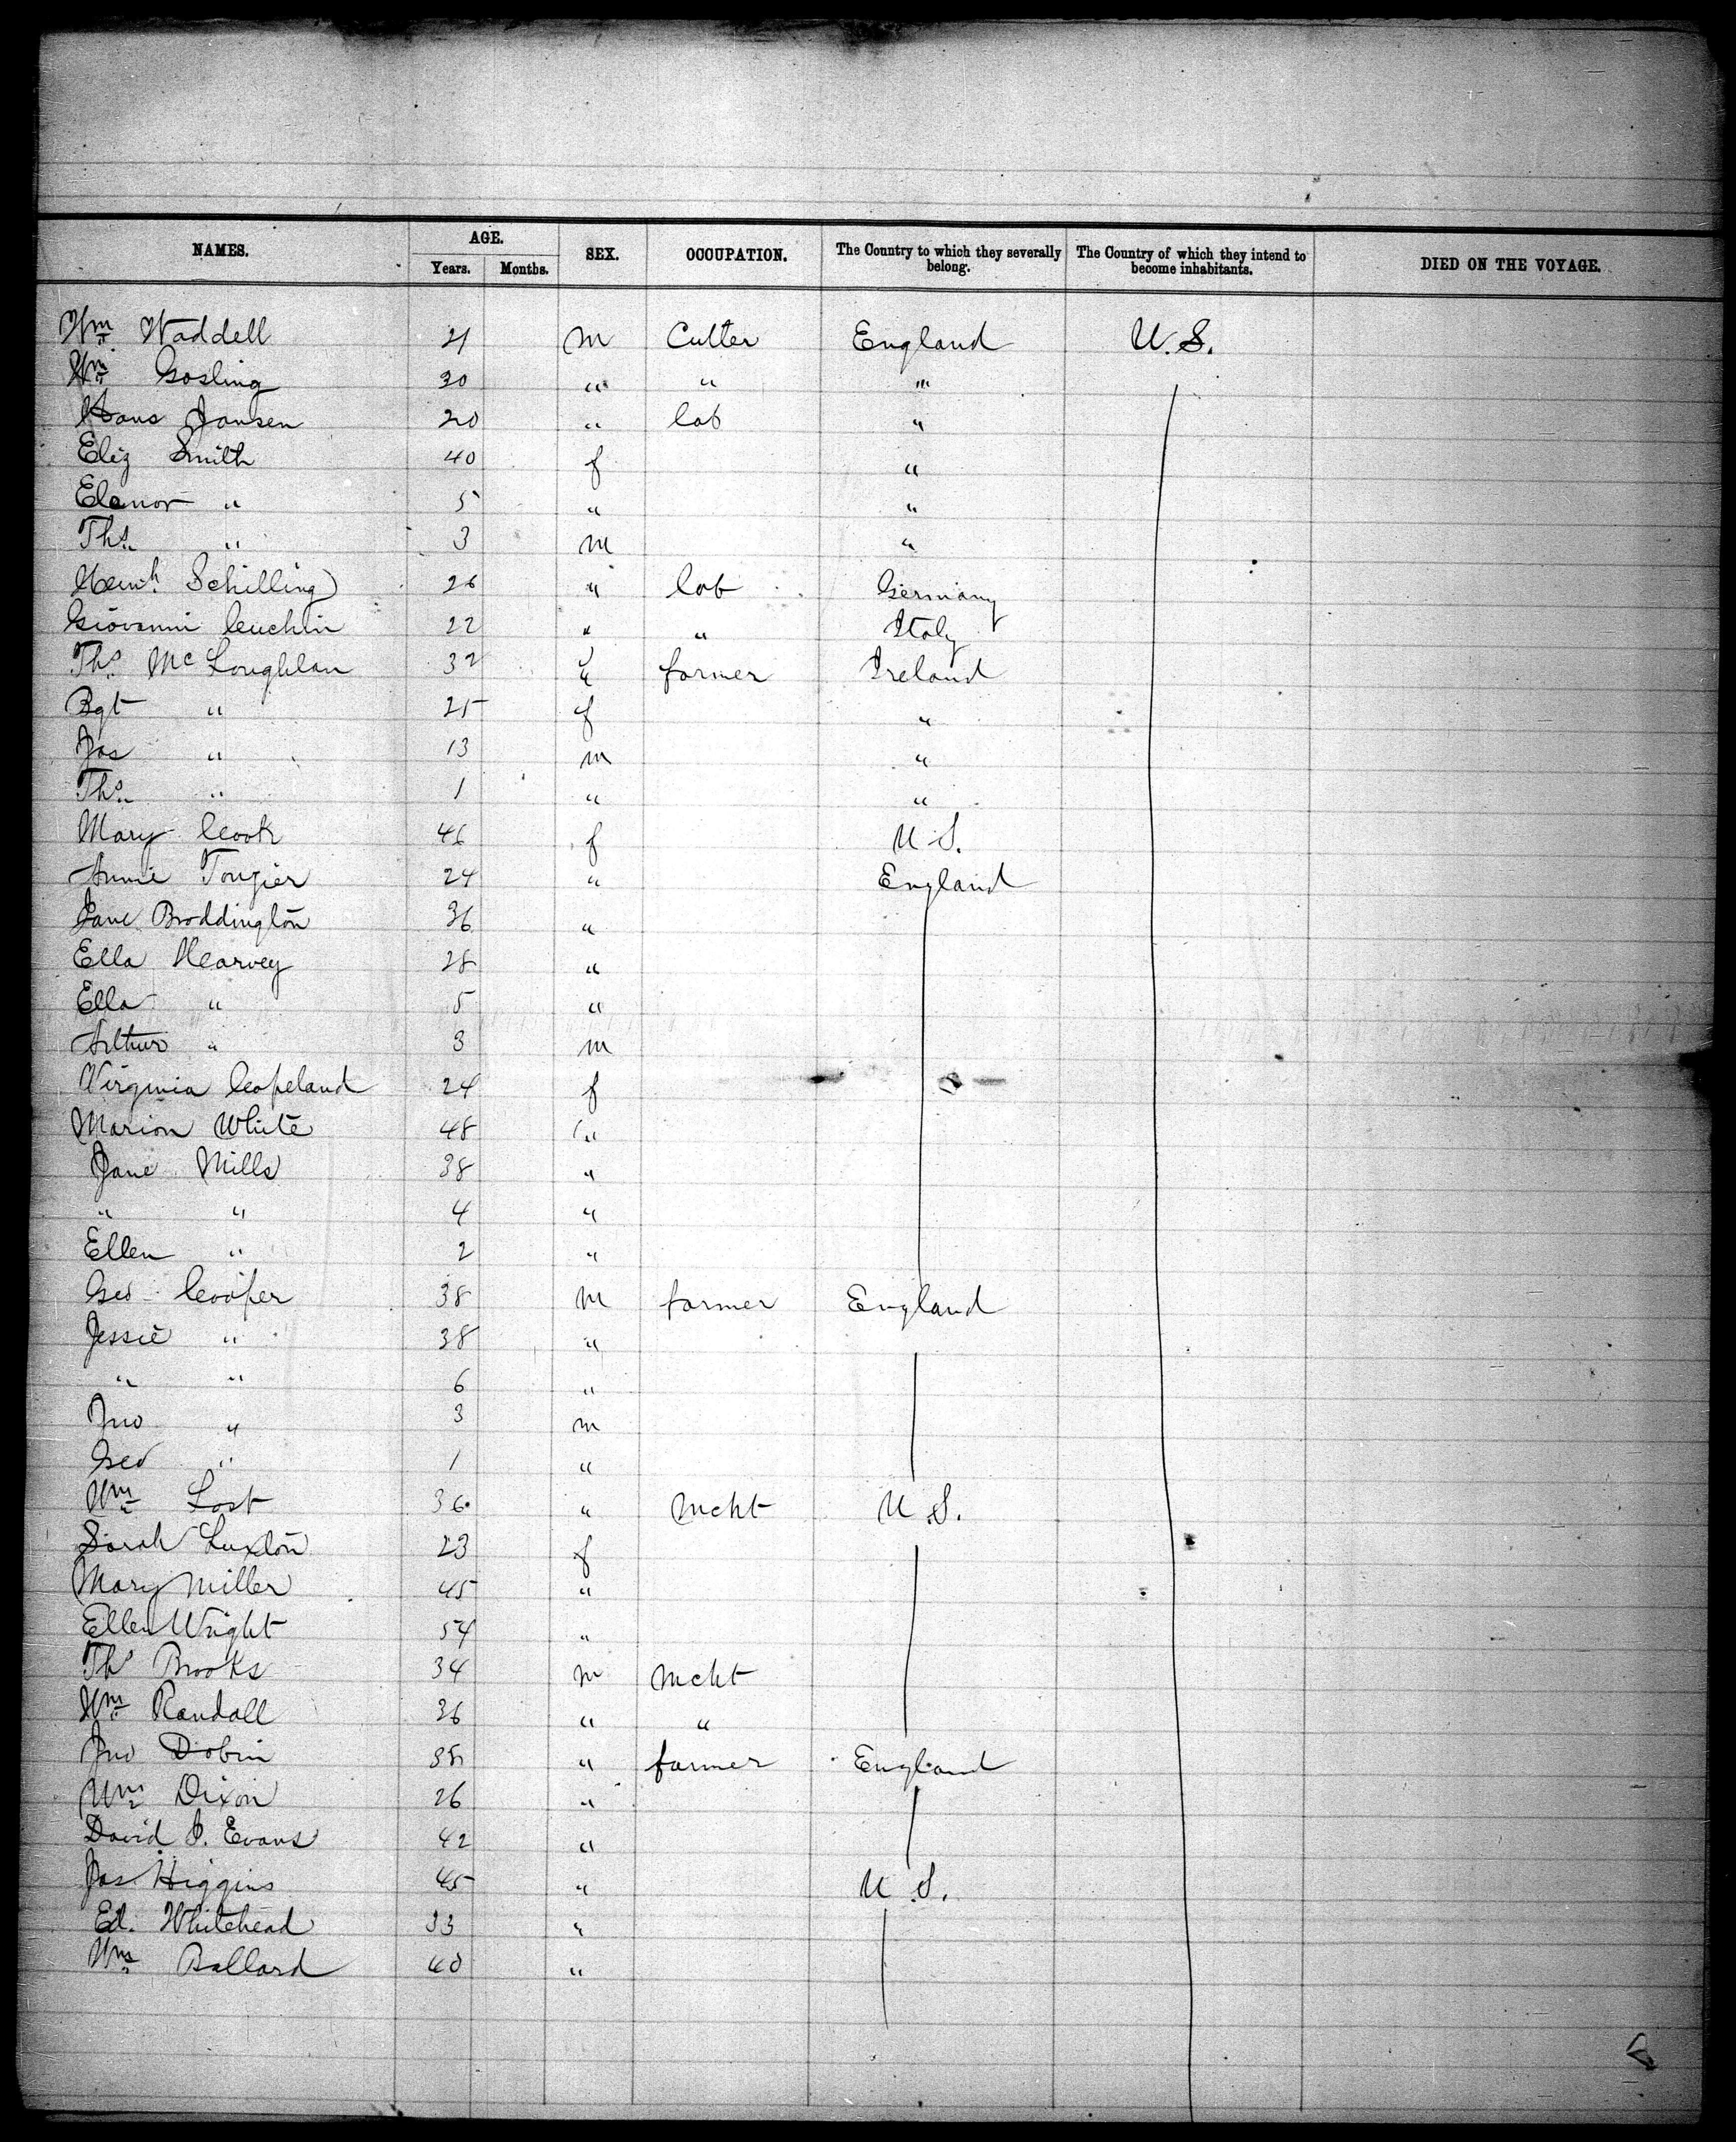 NAMES. AGE. SEX. OCCUPATION. The Country to which they severally belong. The Country of which they intend to become inhabitants. DIED ON THE VOYAGE.
Years. Months.
Wm Waddell 21 m Cutter England U.S.
Wm Gosling 30 " " "
Hans Jansen 20 " lab "
Eliz Smith 40 f "
Elenor " 5 " "
Ths " 3 m "
Heinh. Schilling 26 " lab Germany
Giovanni Cuchin 22 " " Italy
Ths McLoughlan 32 " farmer Ireland
Bgt " 25 f "
Jas " 13 m "
Ths " 1 " "
Mary Cook 46 f U.S.
Annie Tongier 24 " England
Jane Broddington 36 "
Ella Hearvey 28 "
Ella " 5 "
Arthur " 3 m
Virginia Copeland 24 f
Marion White 48 "
Jane Mills 38 "
" " 4 "
Ellen " 2 "
Geo Cooper 38 m farmer England
Jessie " 38 "
" " 6 "
Jno " 3 m
Geo " 1 "
Wm Lost 36 " mcht U.S.
Sarah Luxton 23 f
Mary Miller 45 "
Ellen Wright 54 "
Ths Brooks 34 m mcht
Wm Randall 36 " "
Jno Dobin 35 " farmer England
Wm Dixon 26 "
David J. Evans 42 "
Jas Higgins 45 " U.S.
Ed. Whitehead 33 "
Wm Ballard 40 "